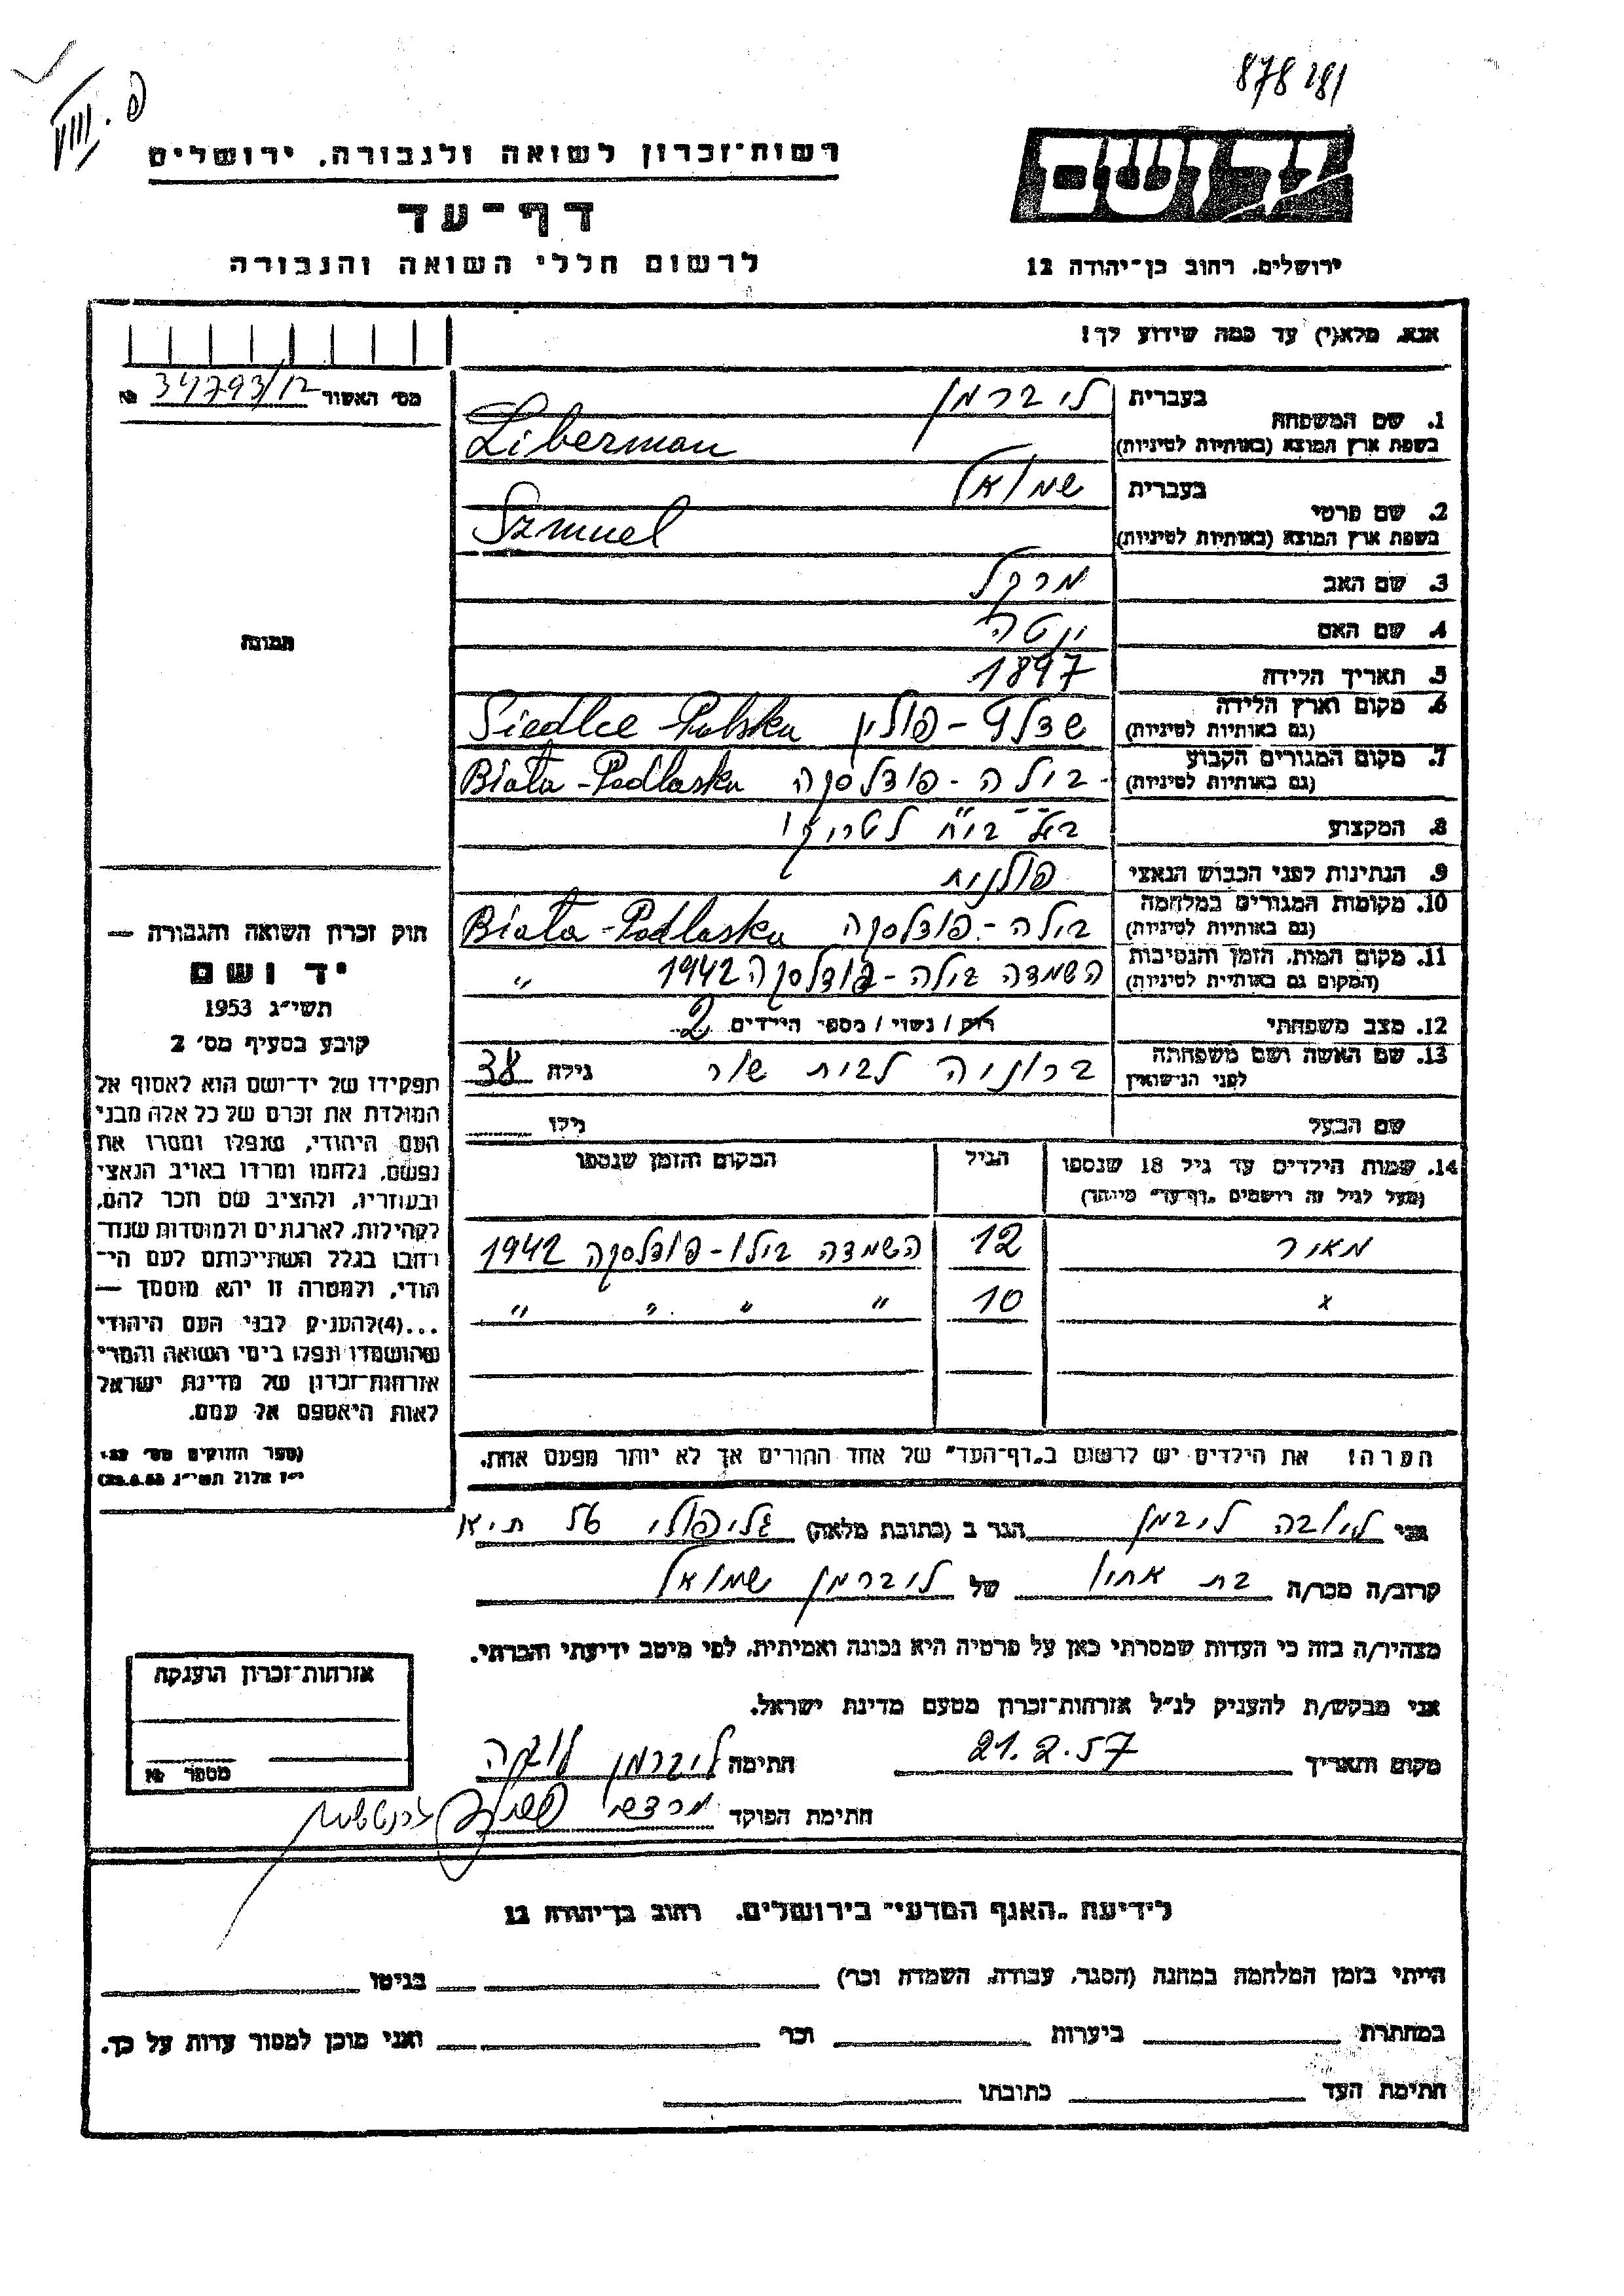 878 181
פ. VIII
יד ושם
רשות־זכרון לשואה ולגבורה, ירושלים
דף־עד
לרשום חללי השואה והגבורה
ירושלים, רחוב בן־יהודה 12
אנא, מלא(י) עד כמה שידוע לך!
מס׳ האשור 34793/12 №
בעברית ליברמן
1. שם המשפחה
בשפת ארץ המוצא (באותיות לטיניות) Liberman
בעברית שמואל
2. שם פרטי
בשפת ארץ המוצא (באותיות לטיניות) Szmuel
3. שם האב מרקל
4. שם האם יטה
5. תאריך הלידה 1897
6. מקום וארץ הלידה
(גם באותיות לטיניות) שדלץ - פולין Siedlce - Polska
7. מקום המגורים הקבוע
(גם באותיות לטיניות) בילה - פודלסקה Biała - Podlaska
8. המקצוע
9. הנתינות לפני הכבוש הנאצי פולנית
10. מקומות המגורים במלחמה
(גם באותיות לטיניות) בילה - פודלסקה Biała - Podlaska
11. מקום המות, הזמן והנסיבות
(המקום גם באותיות לטיניות) השמדה בילה - פודלסקה 1942 "
12. מצב משפחתי רוק / נשוי / מספר הילדים 2
13. שם האשה ושם משפחתה
לפני הנישואין ברוניה לבית שור גילה 38
שם הבעל גילו
14. שמות הילדים עד גיל 18 שנספו הגיל המקום והזמן שנספו
(מעל לגיל זה רושמים „דף־עד" מיוחד)
מאיר 12 השמדה בילו - פודלסקה 1942
x 10 " " " "
הערה! את הילדים יש לרשום ב„דף־העד" של אחד ההורים אך לא יותר מפעם אחת.
תמונה
חוק זכרון השואה והגבורה —
יד ושם
תשי״ג 1953
קובע בסעיף מס׳ 2
תפקידו של יד־ושם הוא לאסוף אל
המולדת את זכרם של כל אלה מבני
העם היהודי, שנפלו ומסרו את
נפשם, נלחמו ומרדו באויב הנאצי
ובעוזריו, ולהציב שם וזכר להם,
לקהילות, לארגונים ולמוסדות שנח־
רבו בגלל השתייכותם לעם הי־
הודי, ולמטרה זו יהא מוסמך —
...(4)להעניק לבני העם היהודי
שהושמדו ונפלו בימי השואה והמרי
אזרחות־זכרון של מדינת ישראל
לאות היאספם אל עמם.
(ספר החוקים מס׳ 132.
י״ז אלול תשי״ג 28.8.53)
אני ליובה ליברמן הגר ב (כתובת מלאה) גליפולי 56 ת״א
קרוב/ה מכר/ה בת אחיו של ליברמן שמואל
מצהיר/ה בזה כי העדות שמסרתי כאן על פרטיה היא נכונה ואמיתית, לפי מיטב ידיעתי והכרתי.
אני מבקש/ת להעניק לנ״ל אזרחות־זכרון מטעם מדינת ישראל.
מקום ותאריך 21.2.57 חתימה ליברמן ליובה
חתימת הפוקד מרדכי
אזרחות־זכרון הוענקה
מספר №
לידיעת „האגף המדעי" בירושלים, רחוב בן־יהודה 12
הייתי בזמן המלחמה במחנה (הסגר, עבודה, השמדה וכו׳) בגיטו
במחתרת ביערות וכו׳ ואני מוכן למסור עדות על כך.
חתימת העד כתובתו